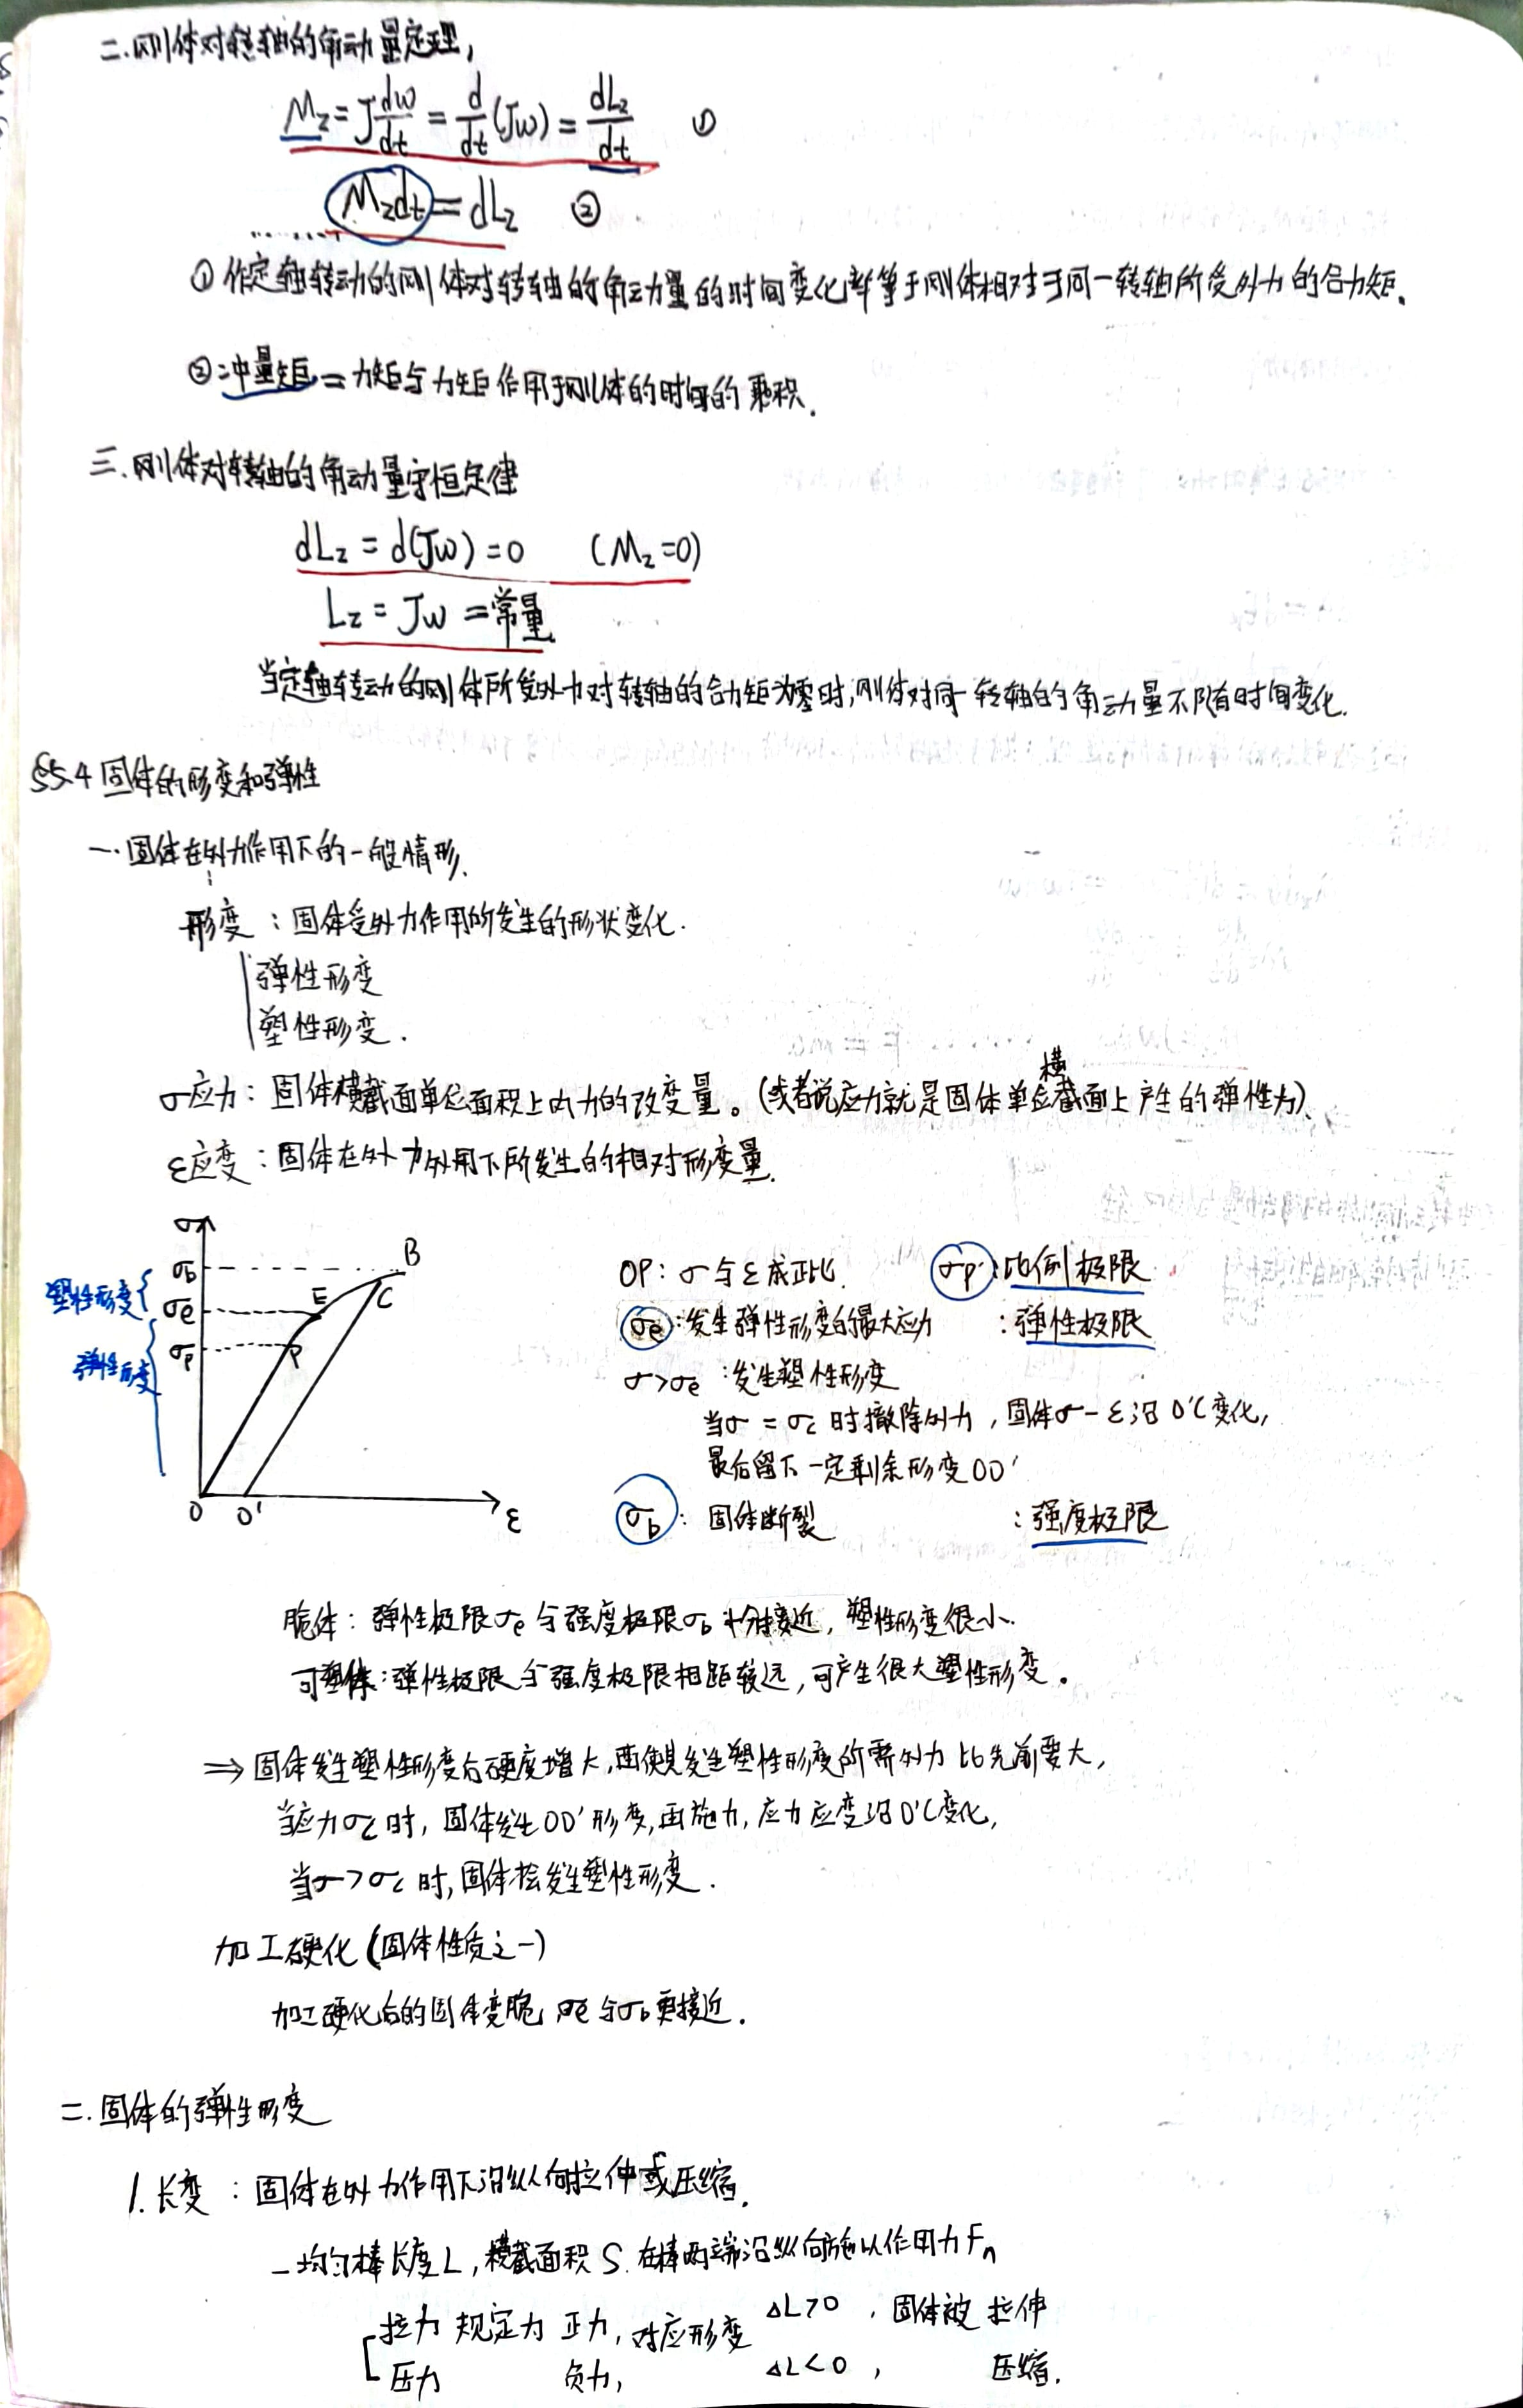 二.刚体对转轴的角动量定理,
M_z = J dω/dt = d/dt (Jω) = dL_z/dt ①
M_z dt = dL_z ②
①作定轴转动的刚体对转轴的角动量的时间变化率等于刚体相对于同一转轴所受外力的合力矩.
②冲量矩 = 力矩与力矩作用于刚体的时间的乘积.
三.刚体对转轴的角动量守恒定律
dL_z = d(Jω) = 0 (M_z=0)
L_z = Jω = 常量.
当定轴转动的刚体所受外力对转轴的合力矩为零时,刚体对同一转轴的角动量不随时间变化.
§5.4 固体的形变和弹性
一.固体在外力作用下的一般情形.
形变:固体受外力作用所发生的形状变化.
弹性形变
塑性形变.
σ应力:固体横截面单位面积上内力的改变量。(或者说应力就是固体单位横截面上产生的弹性力).
ε应变:固体在外力外用下所发生的相对形变量.
σ
σb
σe
σp
塑性形变
弹性形变
B
E
C
P
O O' ε
OP: σ与ε成正比. σp:比例极限
σe:发生弹性形变的最大应力 :弹性极限
σ>σe:发生塑性形变
当σ=σc时撤除外力,固体σ-ε沿O'C变化,
最后留下一定剩余形变OO'
σb: 固体断裂 :强度极限
脆体: 弹性极限σe与强度极限σb十分接近, 塑性形变很小.
可塑体:弹性极限与强度极限相距较远,可产生很大塑性形变。
⇒固体发生塑性形变后硬度增大,再使其发生塑性形变所需外力比先前要大,
当应力σc时, 固体发生OO'形变,再施力, 应力应变沿O'C变化,
当σ>σc时,固体才会发生塑性形变.
加工硬化(固体性质之一)
加工硬化后的固体变脆,σe与σb更接近.
二.固体的弹性形变
1.长变:固体在外力作用下沿纵向拉伸或压缩.
一均匀棒长度L,横截面积S.在棒两端沿纵向施以作用力Fn
拉力 规定为 正力,对应形变 ΔL>0 ,固体被 拉伸
压力 负力, ΔL<0 , 压缩.